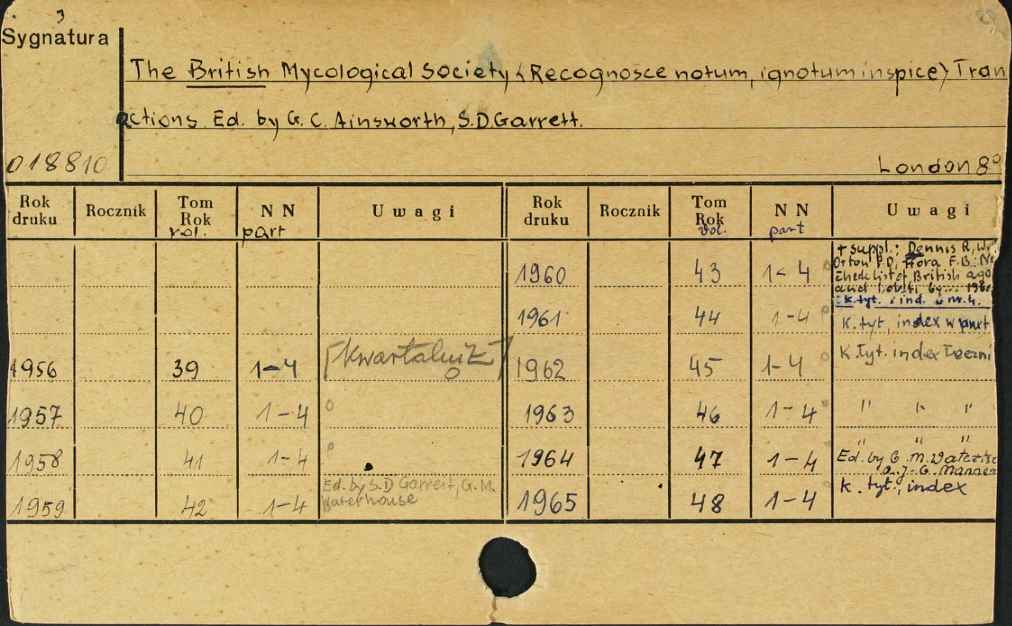 3
Sygnatura
The British Mycological Society <Recognosce notum, ignotum inspice> Tran
actions. Ed. by G. C. Ainsworth, S.D.Garrett.
018810
London 8°
Rok druku Rocznik Tom Rok vol. NN part Uwagi Rok druku Rocznik Tom Rok vol. NN part Uwagi
1960 43 1-4 + suppl.: Dennis R.W.
Orton P.D. Hora F.B.
Check list of British
and by... 1960
k. tyt. i ind. w nr. 4.
1961 44 1-4 K. tyt, index w
1956 39 1-4 [kwartalnik] 1962 45 1-4 K tyt. index
1957 40 1-4 " 1963 46 1-4 " " "
1958 41 1-4 " 1964 47 1-4 " " "
Ed. by G. M.
a. J. G. Manner
1959 42 1-4 Ed. by S.D Garrett, G.M.
Waterhouse
1965 48 1-4 K. tyt., index